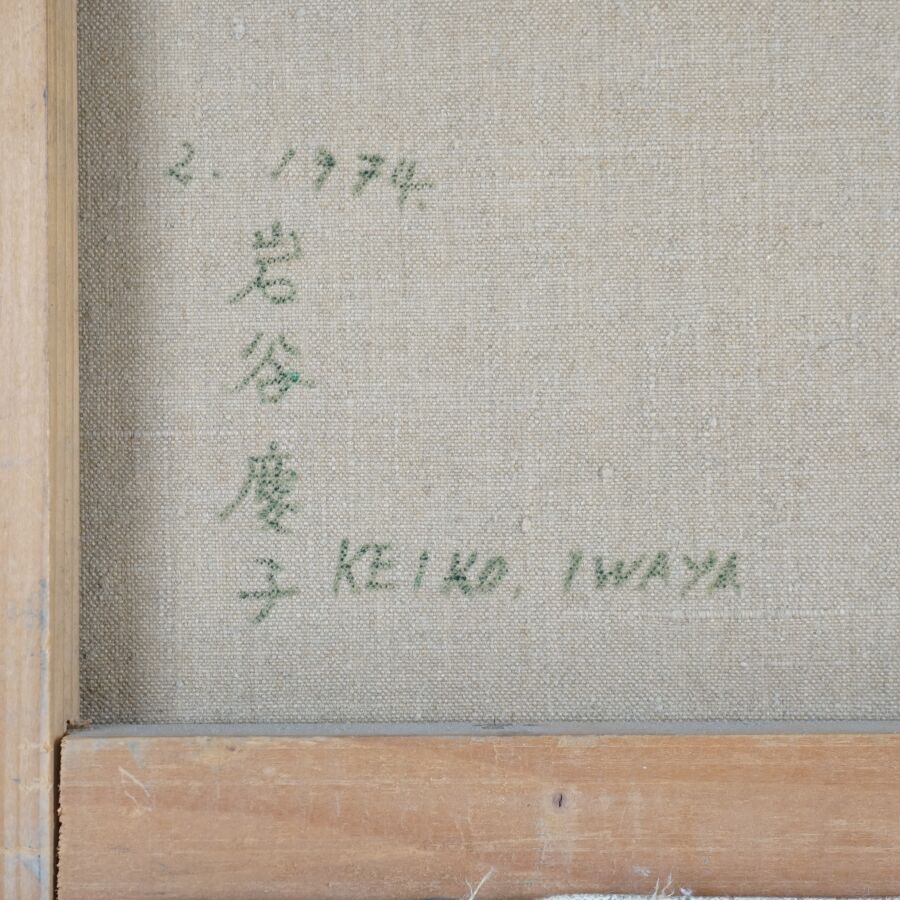 2. 1974.
岩谷慶子
KEIKO, IWAYA